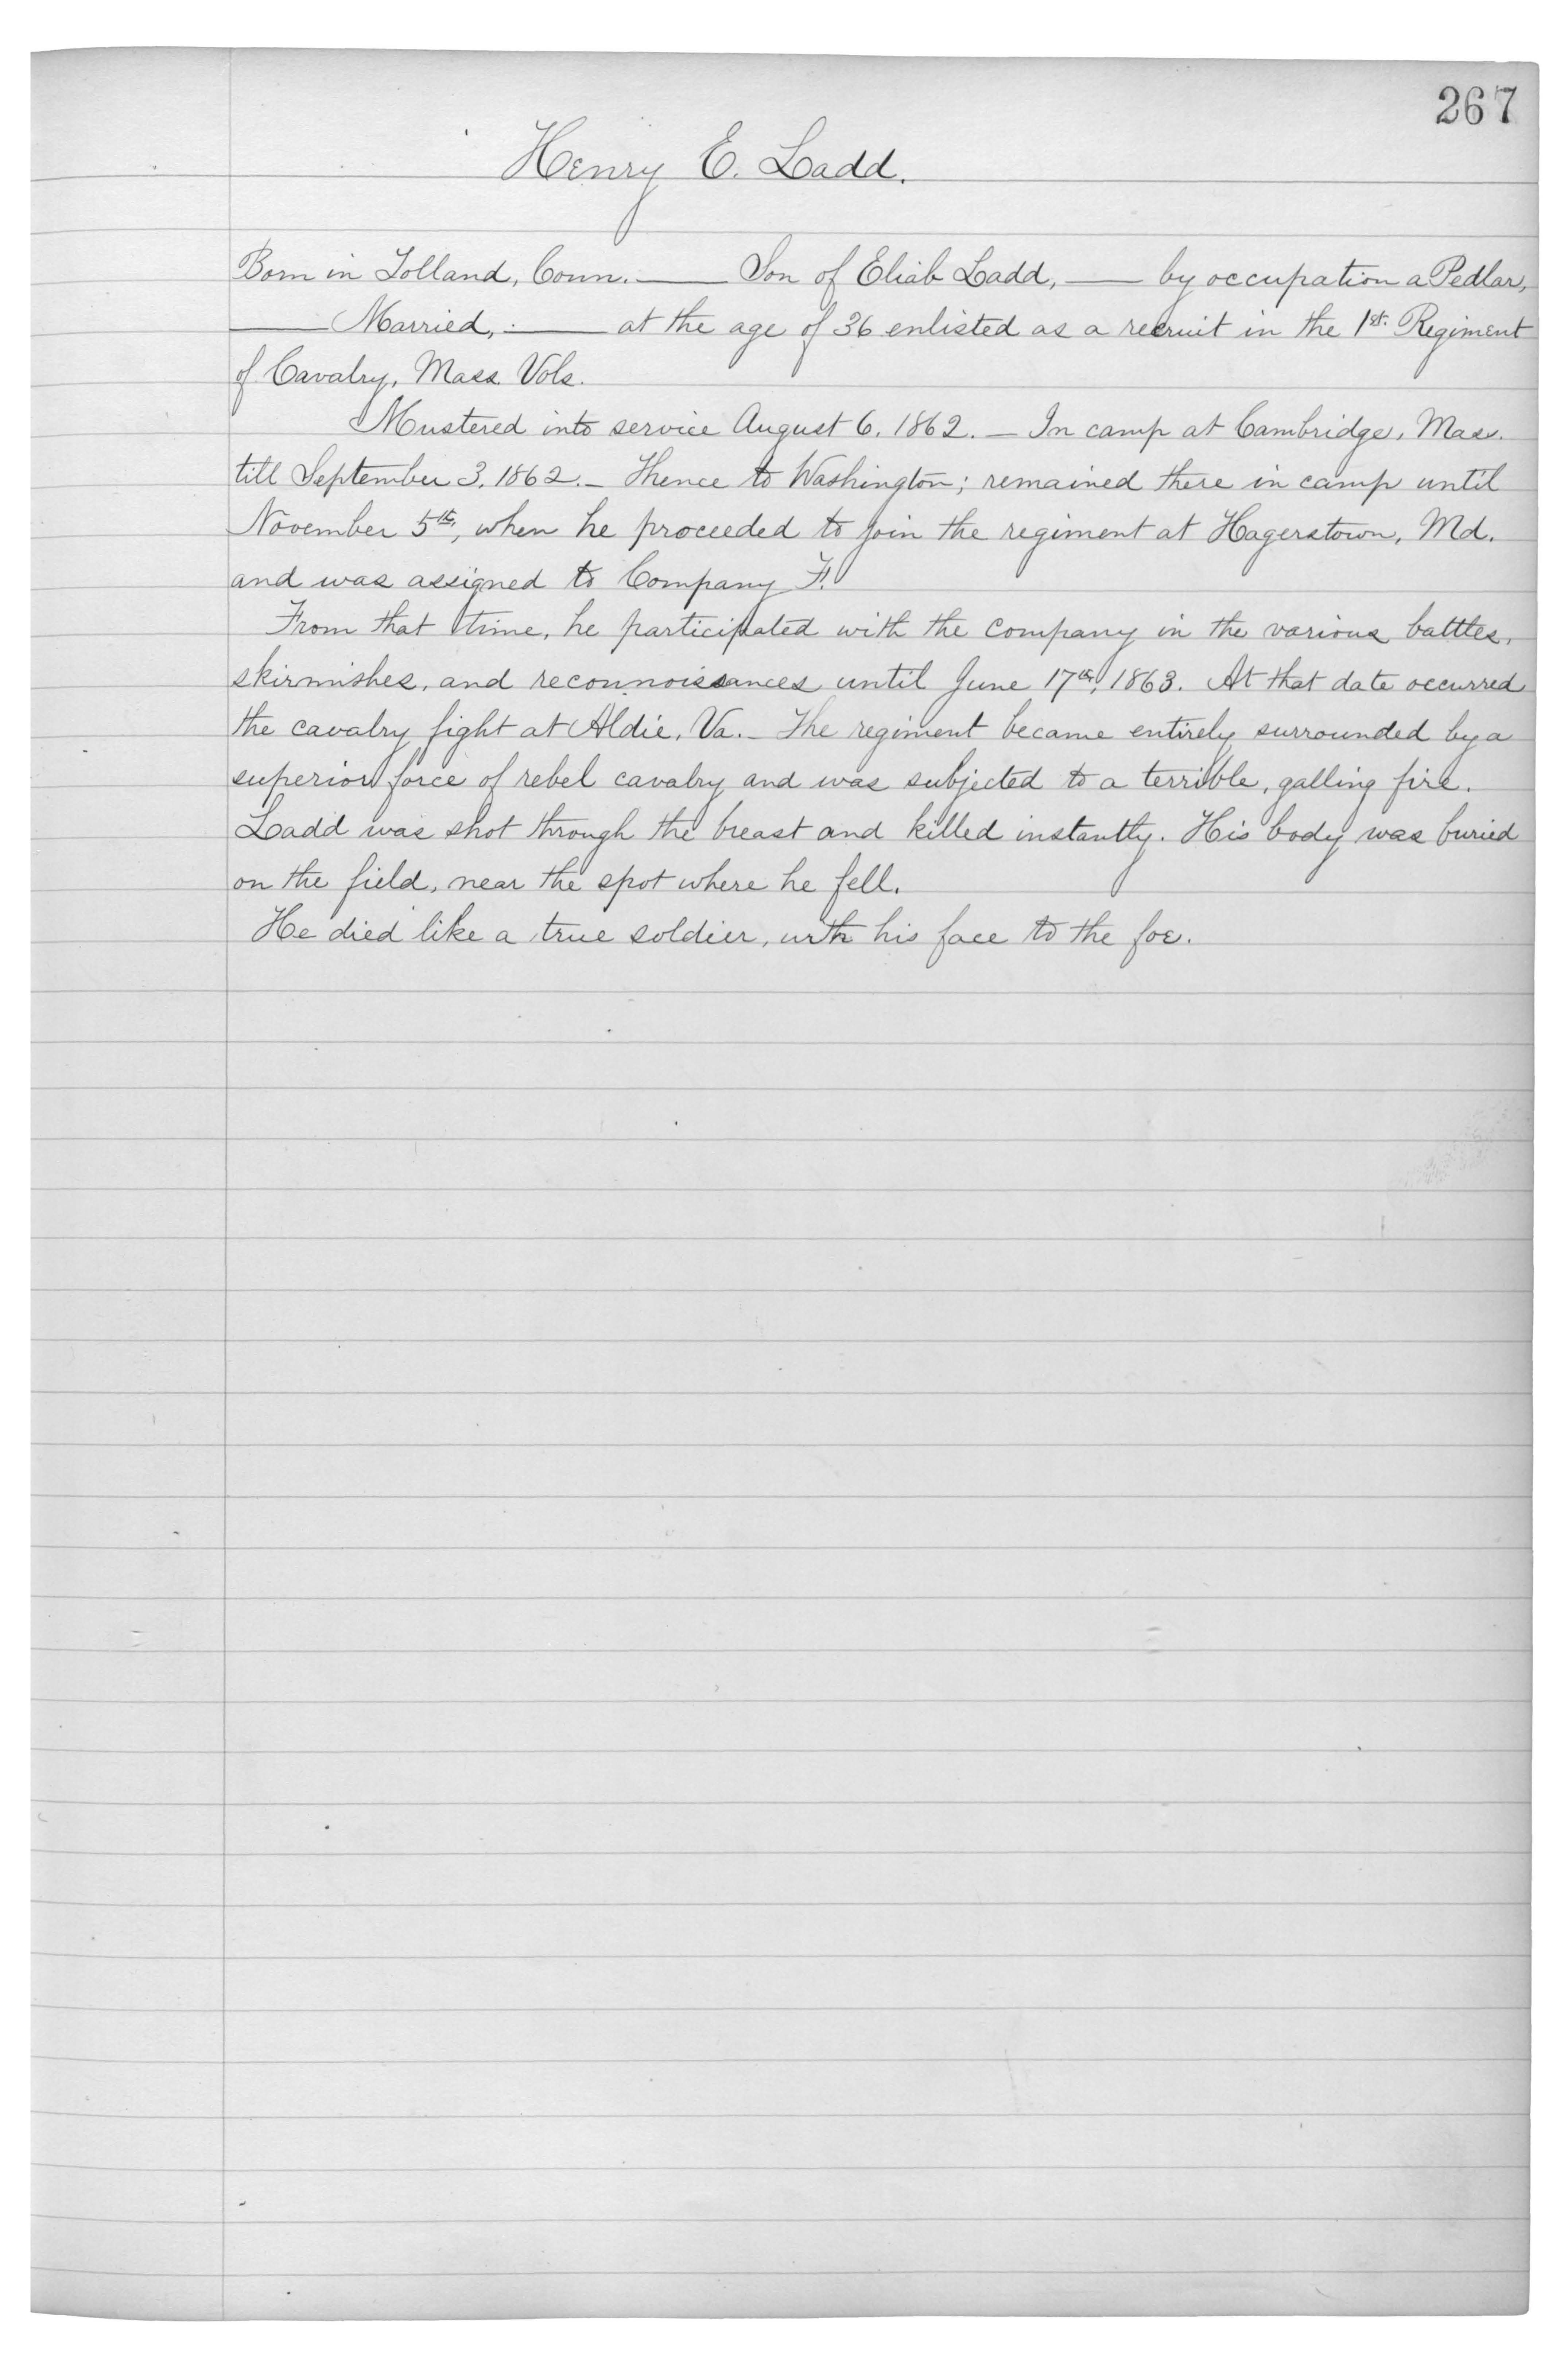 267
Henry E. Ladd.
Born in Tolland, Conn. — Son of Eliab Ladd, — by occupation a Pedlar,
— Married, — at the age of 36 enlisted as a recruit in the 1st. Regiment
of Cavalry, Mass. Vols.
Mustered into service August 6, 1862. — In camp at Cambridge, Mass.
till September 3, 1862. — Thence to Washington; remained there in camp until
November 5th, when he proceeded to join the regiment at Hagerstown, Md.
and was assigned to Company F.
From that time, he participated with the company in the various battles,
skirmishes, and reconnoissances until June 17th, 1863. At that date occurred
the cavalry fight at Aldie, Va. — The regiment became entirely surrounded by a
superior force of rebel cavalry and was subjected to a terrible, galling fire.
Ladd was shot through the breast and killed instantly. His body was buried
on the field, near the spot where he fell.
He died like a true soldier, with his face to the foe.